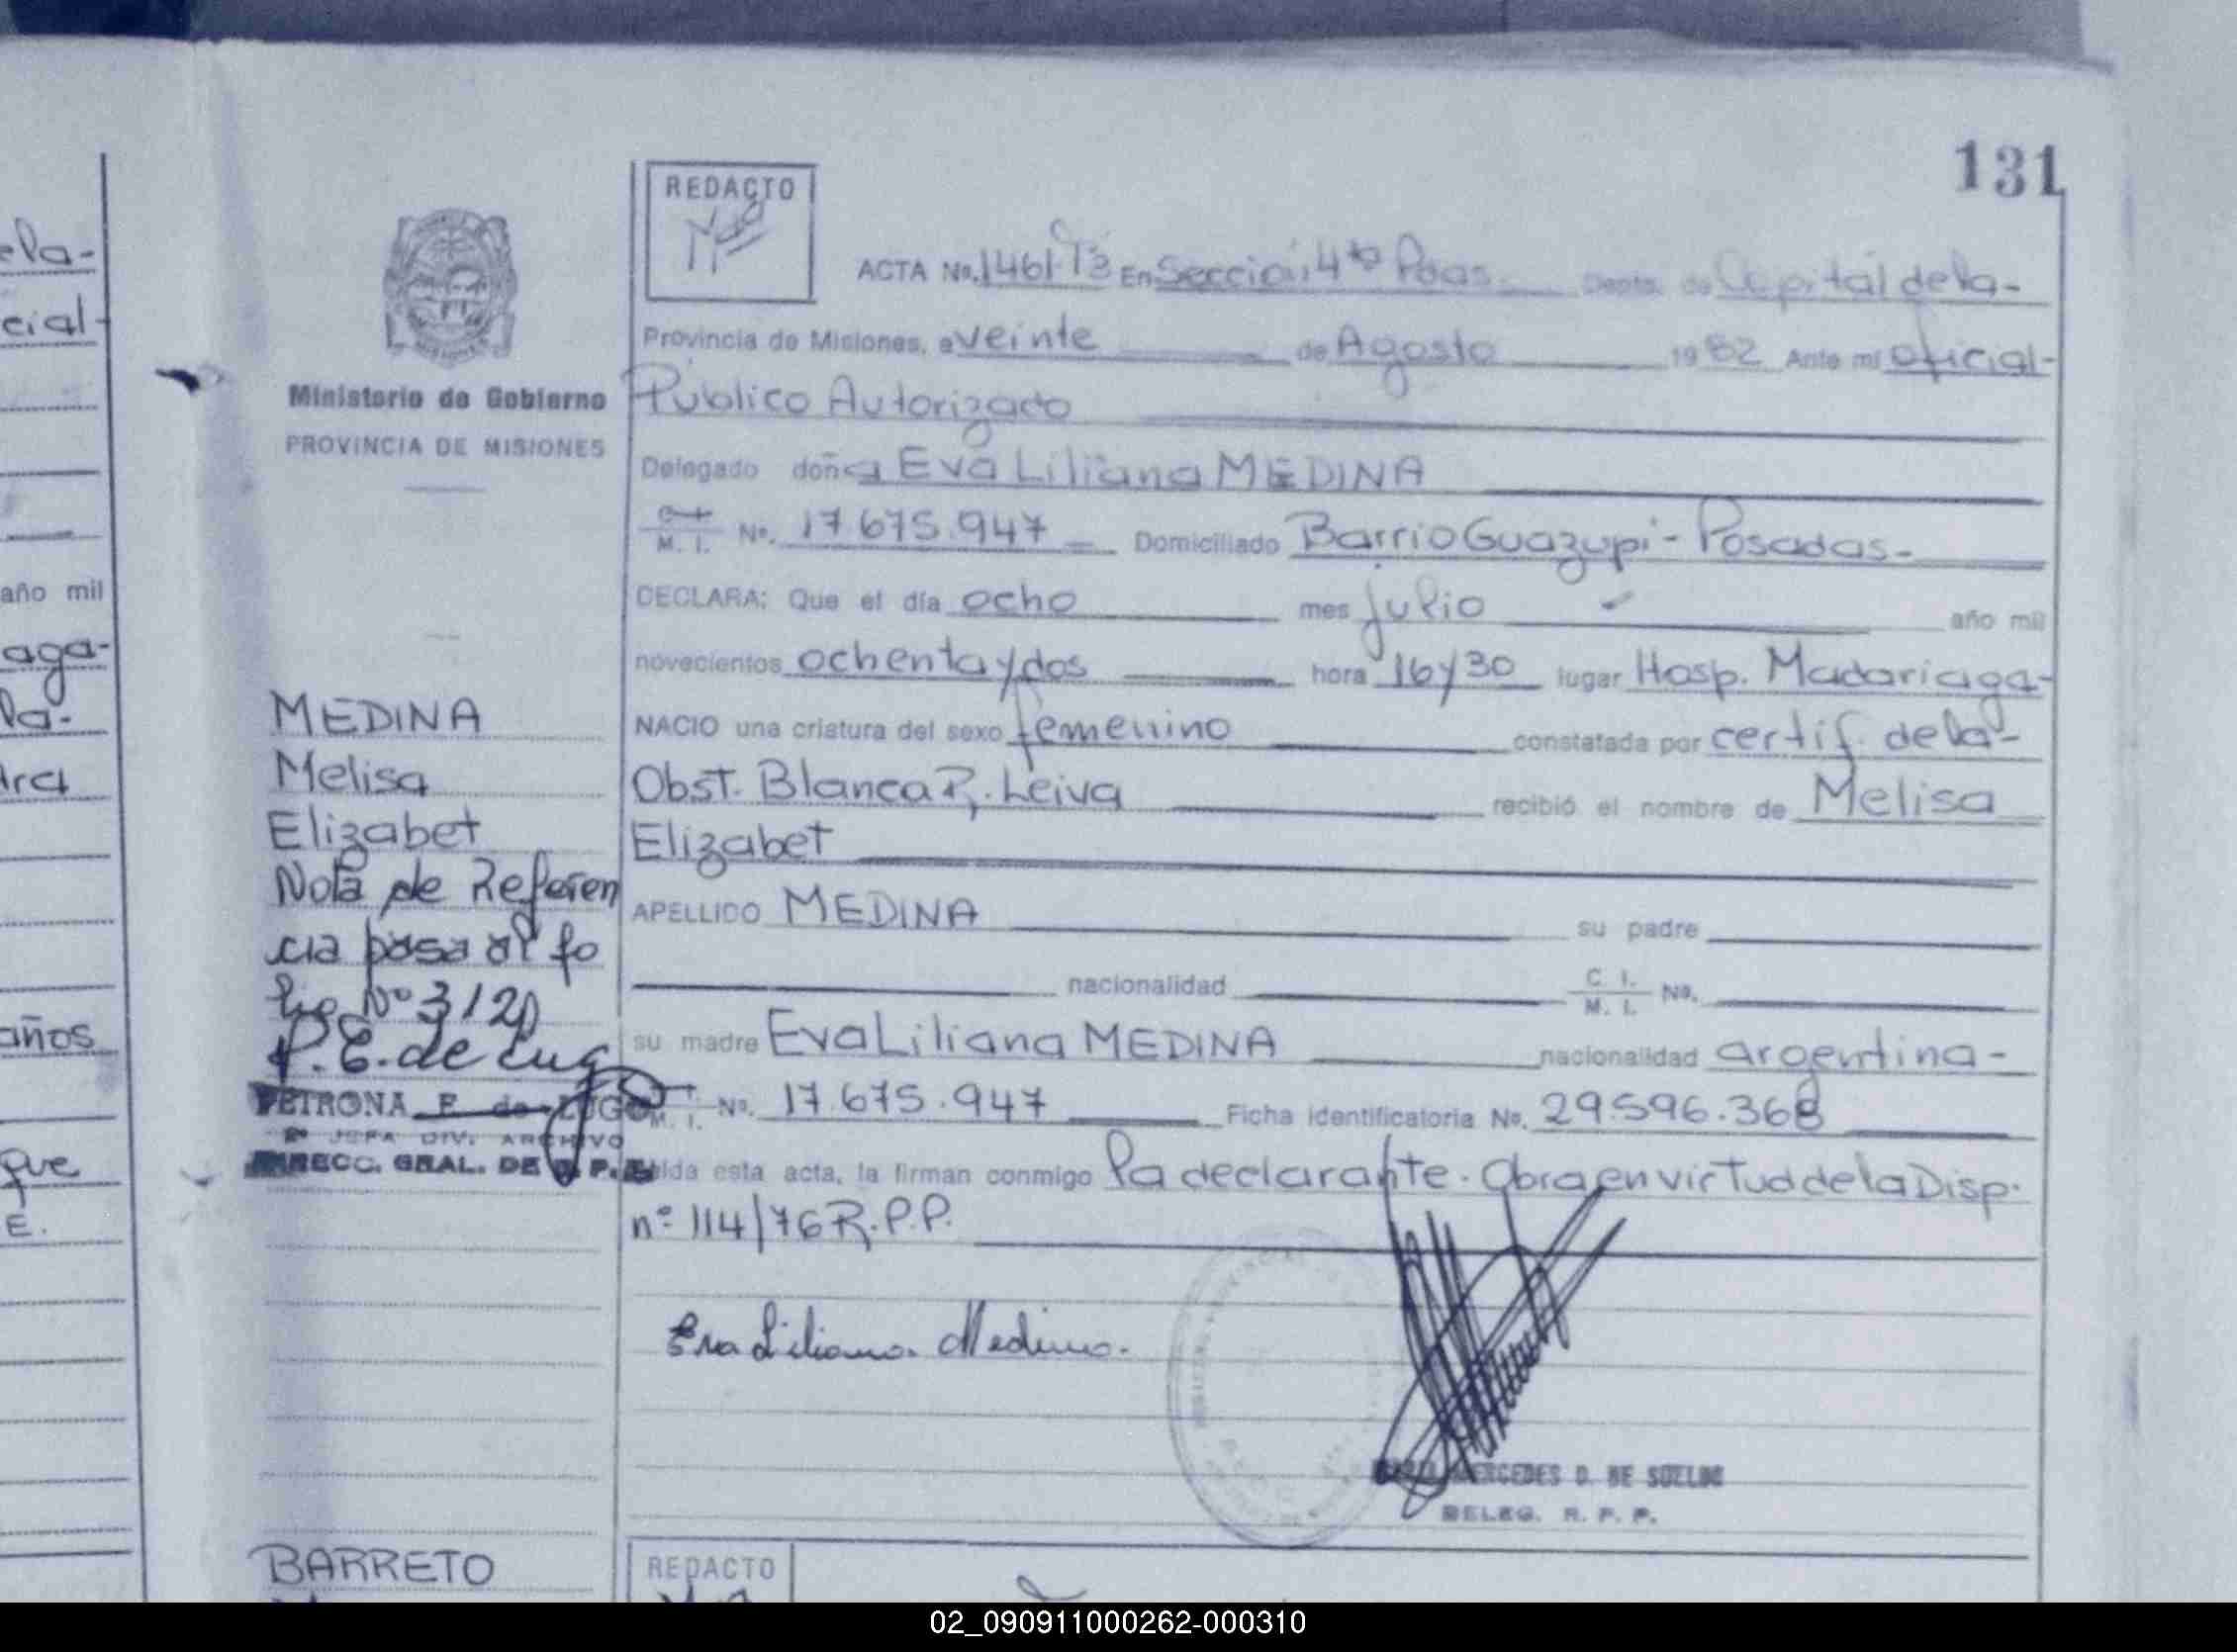 131
REDACTO
ACTA No. 1461 T3 En Sección 4ta Pdas. Depto. de Capital de la-
Provincia de Misiones, a veinte de Agosto 1982 Ante mi oficial-
Ministerio de Gobierno
Público Autorizado
PROVINCIA DE MISIONES
Delegado doña Eva Liliana MEDINA
M. I. No. 17.675.947 Domiciliado Barrio Guazupi - Posadas-
DECLARA: Que el día ocho mes julio año mil
novecientos ochenta y dos hora 16 y 30 lugar Hosp. Madariaga-
NACIO una criatura del sexo femenino constatada por certif. de la-
Obst. Blanca R. Leiva recibió el nombre de Melisa
Elizabet
APELLIDO MEDINA su padre
nacionalidad C. I. M. I. No.
su madre Eva Liliana MEDINA nacionalidad argentina-
M. I. No. 17.675.947 Ficha identificatoria No. 29.596.368
leida esta acta, la firman conmigo la declarante. Obra en virtud de la Disp.
nº 114/76 R.P.P.
Eva Liliana Medina.
MERCEDES D. DE SOTELO
DELEG. R. P. P.
MEDINA
Melisa
Elizabet
Nota de Referen
cia pasa al fo
lio Nº 312
P. E. de Lugo
PETRONA E. de LUGO
2ª JEFA DIV. ARCHIVO
DIRECC. GRAL. DE R. P. P.
BARRETO
REDACTO
ela-
cial-
año mil
aga-
la-
años
que
E.
02_090911000262-000310